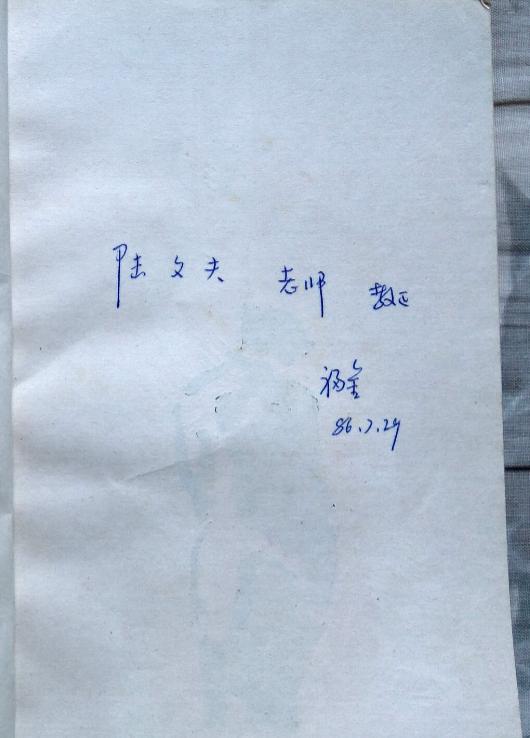 陆文夫 老师 教正
86.7.29